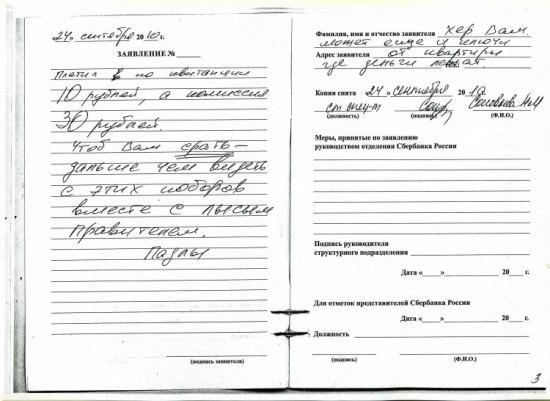 24 „ сентября 2010г.
ЗАЯВЛЕНИЕ №
Платил в по квитанции
10 рублей, а комиссия
30 рублей.
Чтоб Вам срать
дальше чем видеть
с этих поборов
вместе с лысым
правителем.
Падлы
(подпись заявителя)
Фамилия, имя и отчество заявителя Хер Вам.
может еще и ключи
Адрес заявителя от квартиры
где деньги лежат
Копия снята 24 „ сентября 2010
(должность) (подпись) (Ф.И.О.)
Меры, принятые по заявлению
руководством отделения Сбербанка России
Подпись руководителя
структурного подразделения
Дата «____» 20 г.
Для отметок представителей Сбербанка России
Дата «____» 20 г.
Должность
(подпись) (Ф.И.О.)
3